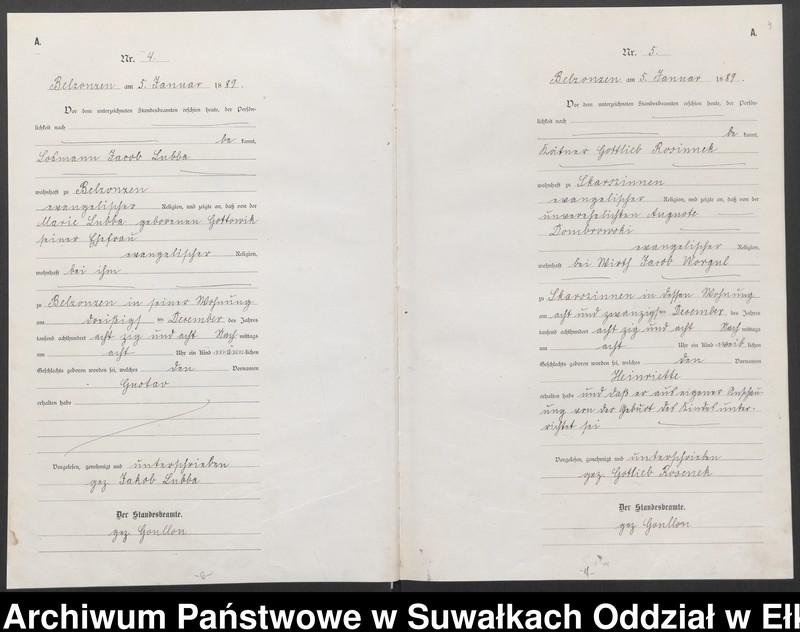 A.
Nr. 4.
Belzonzen am 5. Januar 1889.
Vor dem unterzeichneten Standesbeamten erschien heute, der Persön-
lichkeit nach
be kannt,
Losmann Jacob Lubba
wohnhaft zu Belzonzen
evangelischer Religion, und zeigte an, daß von der
Marie Lubba geborenen Gottowik
seiner Ehefrau
evangelischer Religion,
wohnhaft bei ihm
zu Belzonzen in seiner Wohnung
am dreißigsten Dezember des Jahres
tausend achthundert acht zig und acht Nach mittags
um acht Uhr ein Kind männlichen
Geschlechts geboren worden sei, welches den Vornamen
Gustav
erhalten habe
Vorgelesen, genehmigt und unterschrieben
gez Jakob Lubba
Der Standesbeamte.
gez Goullon
A.
4
Nr. 5.
Belzonzen am 5. Januar 1889.
Vor dem unterzeichneten Standesbeamten erschien heute, der Persön-
lichkeit nach
be kannt,
Kätner Gottlieb Rosinnek
wohnhaft zu Skarozinnen
evangelischer Religion, und zeigte an, daß von der
unverehelichten Auguste
Dombrowski
evangelischer Religion,
wohnhaft bei Wirth Jacob Worgul
zu Skarozinnen in dessen Wohnung
am acht und zwanzigsten Dezember des Jahres
tausend achthundert acht zig und acht Nach mittags
um acht Uhr ein Kind weiblichen
Geschlechts geboren worden sei, welches den Vornamen
Heinriette
erhalten habe und daß er aus eigener Anschau-
ung von der Geburt des Kindes unter-
richtet sei
Vorgelesen, genehmigt und unterschrieben
gez. Gottlieb Rosenek
Der Standesbeamte.
gez Goullon
Archiwum Państwowe w Suwałkach Oddział w Ełk